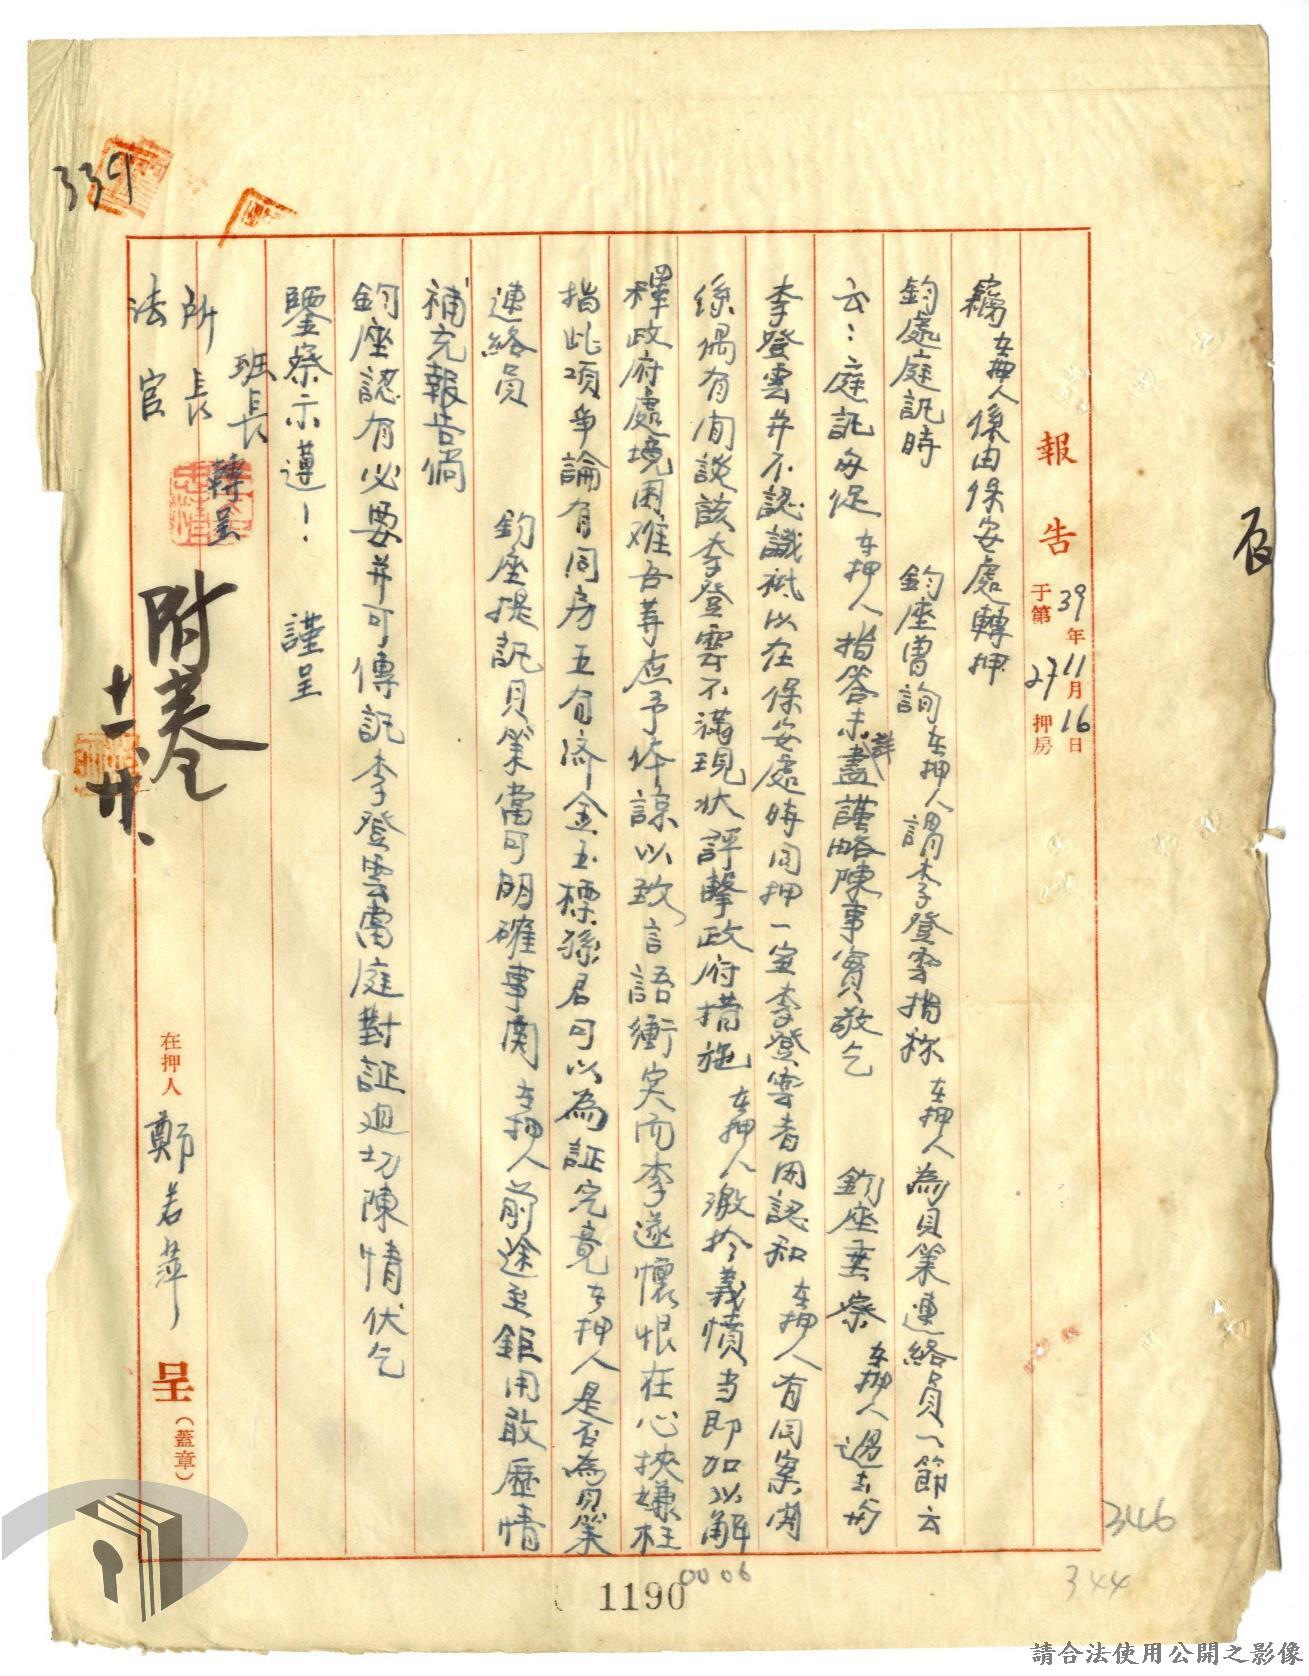 報告
39年11月16日
于第27押房
竊在押人係由保安處轉押
鈞處庭訊時 鈞座曾詢在押人謂李登雲指称 在押人為貝萊連絡員一節云
云：庭訊匆促 在押人指答未盡詳謹略陳事實敬乞 鈞座垂察 在押人過去与
李登雲并不認識祗以在保安處時同押一室李登雲者因認和 在押人有同案関
係偶有闲談該李登雲不滿現状評擊政府措施 在押人激於義憤当即加以解
釋政府處境困难吾等应予体諒以致言語衝突而李遂懷恨在心挾嫌枉
指此項爭論有同房五有济金玉標孫君可以為証究竟在押人是否為貝萊
連絡員 鈞座提訊貝萊當可明確事関 在押人前途至鉅用敢歷情
補充報告倘
鈞座認有必要并可傳訊李登雲當庭對証迫切陳情伏乞
鑒察示遵！ 謹呈
班長 轉呈
所長
法官
在押人 鄭若萍 呈（蓋章）
附卷
十一、廿、
339
辰
346
344
1190
0006
請合法使用公開之影像